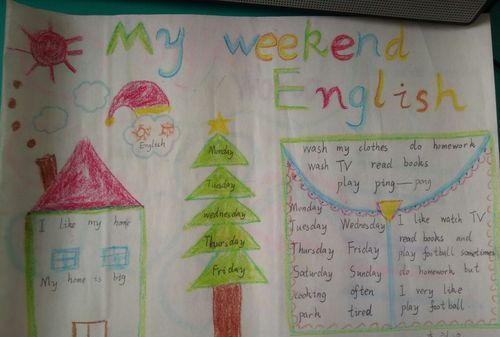 My weekend
English
English
I like my home
My home is big
Monday
Tuesday
wednesday
Thursday
Friday
wash my clothes do homework
wash TV read books
play ping—pong
Monday
Tuesday Wednesday
Thursday Friday
Saturday Sunday
cooking often
park tired
I like watch TV
read books and
play football sometimes
do homework but
I very like
play football